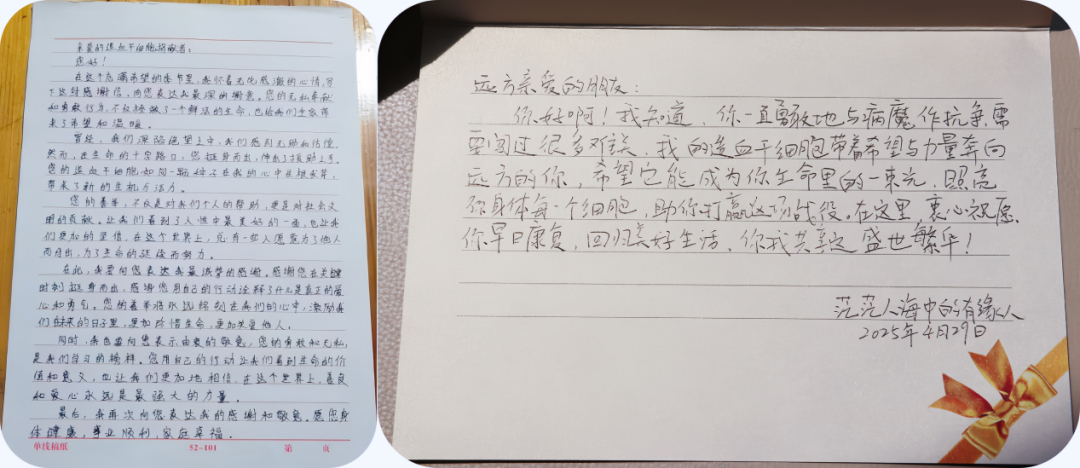 亲爱的造血干细胞捐献者：
您好！
在这个充满希望的季节里，我怀着无比感激的心情，写
下这封感谢信，向您表达我最深的谢意。您的无私奉献
和勇敢行为，不仅拯救了一个鲜活的生命，也给我们全家带
来了希望和温暖。
曾经，我们深陷绝望之中，我们感到无助和彷徨。
然而，在生命的十字路口，您挺身而出，伸出了援助之手。
您的造血干细胞如同一颗种子在我的心中生根发芽，
带来了新的生机与活力。
您的善举，不仅是对我们个人的帮助，更是对社会文
明的贡献。让我们看到了人性中最美好的一面，也让我
们更加的坚信，在这个世界上，总有一些人愿意为了他人
而付出，为了生命的延续而努力。
在此，我要向您表达我最诚挚的感谢。感谢您在关键
时刻挺身而出，感谢您用自己的行动诠释了什么是真正的爱
心和勇气。您的善举将永远铭刻在我们的心中，激励我
们在未来的日子里，更加珍惜生命，更加关爱他人。
同时，我也要向您表示由衷的敬意，您的勇敢和无私，
是我们学习的榜样。您用自己的行动让我们看到生命的价
值和意义，也让我们更加地相信，在这个世界上，善良
和爱心永远是最强大的力量。
最后，我再次向您表达我的感谢和敬意。愿您身
体健康，事业顺利，家庭幸福。
单线稿纸 52-101 第 页
远方亲爱的朋友：
你好啊！我知道，你一直勇敢地与病魔作抗争，需
要闯过很多难关，我的造血干细胞带着希望与力量奔向
远方的你，希望它能成为你生命里的一束光，照亮
你身体每一个细胞，助你打赢这场战役。在这里，衷心祝愿
你早日康复，回归美好生活，你我共享这盛世繁华！
茫茫人海中的有缘人
2025年4月29日